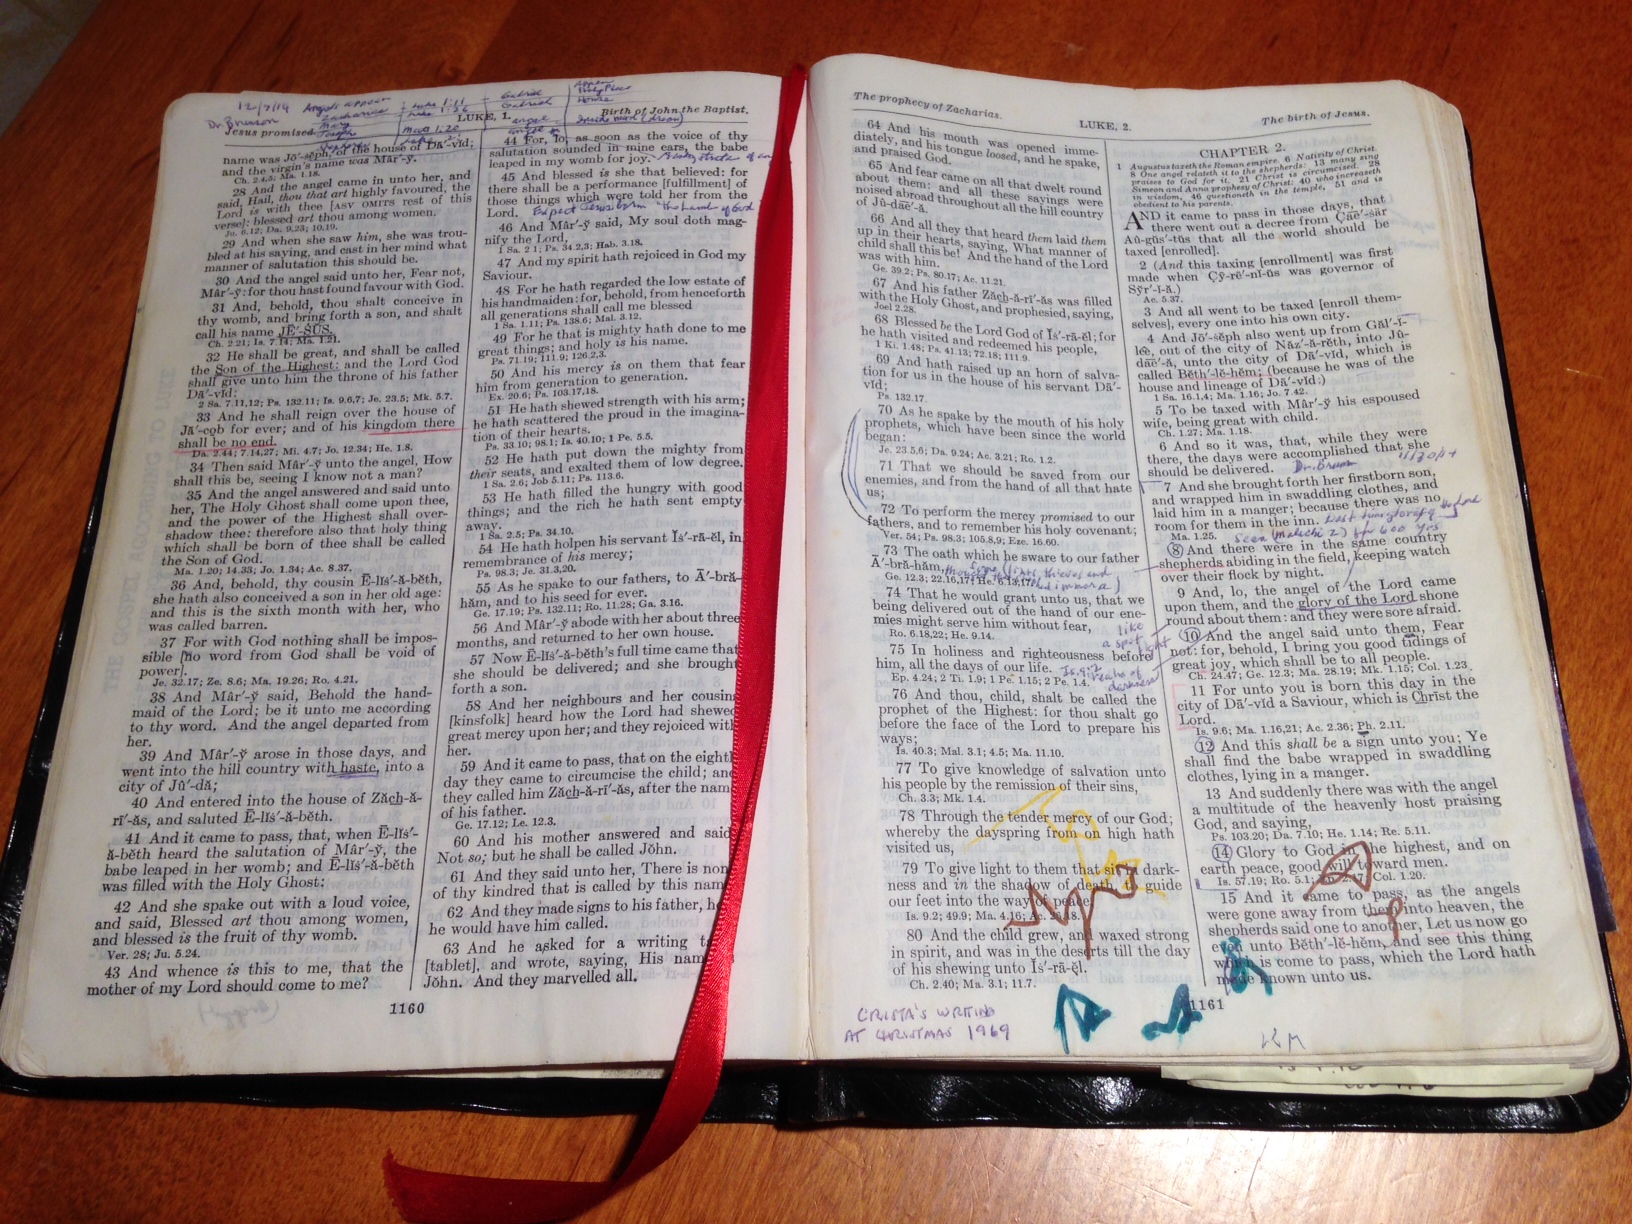 12/7/14
Dr. Bruson
Angels appear
Zacharias
Mary
Joseph
Luke 1:11
Luke 1:26
Matt 1:20
Gabriel
Gabriel
angel
Holy Place
House
Jesus promised.
LUKE, 1.
Birth of John the Baptist.
name was Jō´-sĕph, of the house of Dā´-vĭd;
and the virgin's name was Mâr´-ў.
Ch. 2.4,5; Ma. 1.18.
28 And the angel came in unto her, and
said, Hail, thou that art highly favoured, the
Lord is with thee [ASV OMITS rest of this
verse]: blessed art thou among women.
Ju. 6.12; Da. 9.23; 10.19.
29 And when she saw him, she was trou-
bled at his saying, and cast in her mind what
manner of salutation this should be.
30 And the angel said unto her, Fear not,
Mâr´-ў: for thou hast found favour with God.
31 And, behold, thou shalt conceive in
thy womb, and bring forth a son, and shalt
call his name JĒ´-ŞUS.
Ch. 2.21; Is. 7.14; Ma. 1.21.
32 He shall be great, and shall be called
the Son of the Highest: and the Lord God
shall give unto him the throne of his father
Dā´-vĭd:
2 Sa. 7.11,12; Ps. 132.11; Is. 9.6,7; Je. 23.5; Mk. 5.7.
33 And he shall reign over the house of
Jā´-cob for ever; and of his kingdom there
shall be no end.
Da. 2.44; 7.14,27; Mi. 4.7; Jo. 12.34; He. 1.8.
34 Then said Mâr´-ў unto the angel, How
shall this be, seeing I know not a man?
35 And the angel answered and said unto
her, The Holy Ghost shall come upon thee,
and the power of the Highest shall over-
shadow thee: therefore also that holy thing
which shall be born of thee shall be called
the Son of God.
Ma. 1.20; 14.33; Jo. 1.34; Ac. 8.37.
36 And, behold, thy cousin Ē-lĭş´-ă-bĕth,
she hath also conceived a son in her old age:
and this is the sixth month with her, who
was called barren.
37 For with God nothing shall be impos-
sible [no word from God shall be void of
power].
Je. 32.17; Ze. 8.6; Ma. 19.26; Ro. 4.21.
38 And Mâr´-ў said, Behold the hand-
maid of the Lord; be it unto me according
to thy word. And the angel departed from
her.
39 And Mâr´-ў arose in those days, and
went into the hill country with haste, into a
city of Jû´-dă;
40 And entered into the house of Zăch-ă-
rī´-ăs, and saluted Ē-lĭş´-ă-bĕth.
41 And it came to pass, that, when Ē-lĭş´-
ă-bĕth heard the salutation of Mâr´-ў, the
babe leaped in her womb; and Ē-lĭş´-ă-bĕth
was filled with the Holy Ghost:
42 And she spake out with a loud voice,
and said, Blessed art thou among women,
and blessed is the fruit of thy womb.
Ver. 28; Ju. 5.24.
43 And whence is this to me, that the
mother of my Lord should come to me?
1160
44 For, lo, as soon as the voice of thy
salutation sounded in mine ears, the babe
leaped in my womb for joy.
45 And blessed is she that believed: for
there shall be a performance [fulfillment] of
those things which were told her from the
Lord.
46 And Mâr´-ў said, My soul doth mag-
nify the Lord,
1 Sa. 2 1; Ps. 34.2,3; Hab. 3.18.
47 And my spirit hath rejoiced in God my
Saviour.
48 For he hath regarded the low estate of
his handmaiden: for, behold, from henceforth
all generations shall call me blessed
1 Sa. 1.11; Ps. 138.6; Mal. 3.12.
49 For he that is mighty hath done to me
great things; and holy is his name.
Ps. 71.19; 111.9; 126.2,3.
50 And his mercy is on them that fear
him from generation to generation.
Ex. 20.6; Ps. 103.17,18.
51 He hath shewed strength with his arm;
he hath scattered the proud in the imagina-
tion of their hearts.
Ps. 33.10; 98.1; Is. 40.10; 1 Pe. 5.5.
52 He hath put down the mighty from
their seats, and exalted them of low degree.
1 Sa. 2.6; Job 5.11; Ps. 113.6.
53 He hath filled the hungry with good
things; and the rich he hath sent empty
away.
1 Sa. 2.5; Ps. 34.10.
54 He hath holpen his servant Ĭş´-rā-ĕl, in
remembrance of his mercy;
Ps. 98.3; Je. 31.3,20.
55 As he spake to our fathers, to Ā´-bră-
hăm, and to his seed for ever.
Ge. 17.19; Ps. 132.11; Ro. 11.28; Ga. 3.16.
56 And Mâr´-ў abode with her about three
months, and returned to her own house.
57 Now Ē-lĭş´-ă-bĕth's full time came that
she should be delivered; and she brought
forth a son.
58 And her neighbours and her cousins
[kinsfolk] heard how the Lord had shewed
great mercy upon her; and they rejoiced with
her.
59 And it came to pass, that on the eighth
day they came to circumcise the child; and
they called him Zăch-ă-rī´-ăs, after the nam
of his father.
Ge. 17.12; Le. 12.3.
60 And his mother answered and said
Not so; but he shall be called Jŏhn.
61 And they said unto her, There is non
of thy kindred that is called by this nam
62 And they made signs to his father, h
he would have him called.
63 And he asked for a writing t
[tablet], and wrote, saying, His nam
Jŏhn. And they marvelled all.
The prophecy of Zacharias.
LUKE, 2.
The birth of Jesus.
64 And his mouth was opened imme-
diately, and his tongue loosed, and he spake,
and praised God.
65 And fear came on all that dwelt round
about them: and all these sayings were
noised abroad throughout all the hill country
of Jû-dæ´-ă.
66 And all they that heard them laid them
up in their hearts, saying, What manner of
child shall this be! And the hand of the Lord
was with him.
Ge. 39.2; Ps. 80.17; Ac. 11.21.
67 And his father Zăch-ă-rī´-ăs was filled
with the Holy Ghost, and prophesied, saying,
Joel 2.28.
68 Blessed be the Lord God of Ĭş´-rā-ĕl; for
he hath visited and redeemed his people,
1 Ki. 1.48; Ps. 41.13; 72.18; 111.9.
69 And hath raised up an horn of salva-
tion for us in the house of his servant Dā´-
vĭd;
Ps. 132.17.
70 As he spake by the mouth of his holy
prophets, which have been since the world
began:
Je. 23.5,6; Da. 9.24; Ac. 3.21; Ro. 1.2.
71 That we should be saved from our
enemies, and from the hand of all that hate
us;
72 To perform the mercy promised to our
fathers, and to remember his holy covenant;
Ver. 54; Ps. 98.3; 105.8,9; Eze. 16.60.
73 The oath which he sware to our father
Ā´-bră-hăm,
Ge. 12.3; 22.16,17; He. 6.13,17.
74 That he would grant unto us, that we
being delivered out of the hand of our ene-
mies might serve him without fear,
Ro. 6.18,22; He. 9.14.
75 In holiness and righteousness before
him, all the days of our life.
Ep. 4.24; 2 Ti. 1.9; 1 Pe. 1.15; 2 Pe. 1.4.
like
a spot
light
realm of
darkness
76 And thou, child, shalt be called the
prophet of the Highest: for thou shalt go
before the face of the Lord to prepare his
ways;
Is. 40.3; Mal. 3.1; 4.5; Ma. 11.10.
77 To give knowledge of salvation unto
his people by the remission of their sins,
Ch. 3.3; Mk. 1.4.
78 Through the tender mercy of our God;
whereby the dayspring from on high hath
visited us,
79 To give light to them that sit in dark-
ness and in the shadow of death, to guide
our feet into the way of peace.
Is. 9.2; 49.9; Ma. 4.16; Ac. 26.18.
80 And the child grew, and waxed strong
in spirit, and was in the deserts till the day
of his shewing unto Ĭş´-rā-ĕl.
Ch. 2.40; Ma. 3.1; 11.7.
CRISTA'S WRITING
AT CHRISTMAS 1969
CHAPTER 2.
1 Augustus taxeth the Roman empire. 6 Nativity of Christ.
8 One angel relateth it to the shepherds: 13 many sing
praises to God for it. 21 Christ is circumcised. 28
Simeon and Anna prophesy of Christ; 40 who increaseth
in wisdom, 46 questioneth in the temple, 51 and is
obedient to his parents.
AND it came to pass in those days, that
there went out a decree from Çæē´-sär
Aû-gŭs´-tŭs that all the world should be
taxed [enrolled].
2 (And this taxing [enrollment] was first
made when Çȳ-rē´-nĭ-ŭs was governor of
Sўr´-ĭ-ă.)
Ac. 5.37.
3 And all went to be taxed [enroll them-
selves], every one into his own city.
4 And Jō´-sĕph also went up from Găl´-ĭ-
lēē, out of the city of Năz´-ă-rĕth, into Jû-
dæ´-ă, unto the city of Dā´-vĭd, which is
called Bĕth´-lĕ-hĕm; (because he was of the
house and lineage of Dā´-vĭd:)
1 Sa. 16.1,4; Ma. 1.16; Jo. 7.42.
5 To be taxed with Mâr´-ў his espoused
wife, being great with child.
Ch. 1.27; Ma. 1.18.
6 And so it was, that, while they were
there, the days were accomplished that she
should be delivered.
Dr. Bruson 11/30/14
7 And she brought forth her firstborn son,
and wrapped him in swaddling clothes, and
laid him in a manger; because there was no
room for them in the inn.
Ma. 1.25.
8 And there were in the same country
shepherds abiding in the field, keeping watch
over their flock by night.
9 And, lo, the angel of the Lord came
upon them, and the glory of the Lord shone
round about them: and they were sore afraid.
10 And the angel said unto them, Fear
not: for, behold, I bring you good tidings of
great joy, which shall be to all people.
Ch. 24.47; Ge. 12.3; Ma. 28.19; Mk. 1.15; Col. 1.23.
11 For unto you is born this day in the
city of Dā´-vĭd a Saviour, which is Chrīst the
Lord.
Is. 9.6; Ma. 1.16,21; Ac. 2.36; Ph. 2.11.
12 And this shall be a sign unto you; Ye
shall find the babe wrapped in swaddling
clothes, lying in a manger.
13 And suddenly there was with the angel
a multitude of the heavenly host praising
God, and saying,
Ps. 103.20; Da. 7.10; He. 1.14; Re. 5.11.
14 Glory to God in the highest, and on
earth peace, good will toward men.
Is. 57.19; Ro. 5.1; Col. 1.20.
15 And it came to pass, as the angels
were gone away from them into heaven, the
shepherds said one to another, Let us now go
even unto Bĕth´-lĕ-hĕm, and see this thing
which is come to pass, which the Lord hath
made known unto us.
1161